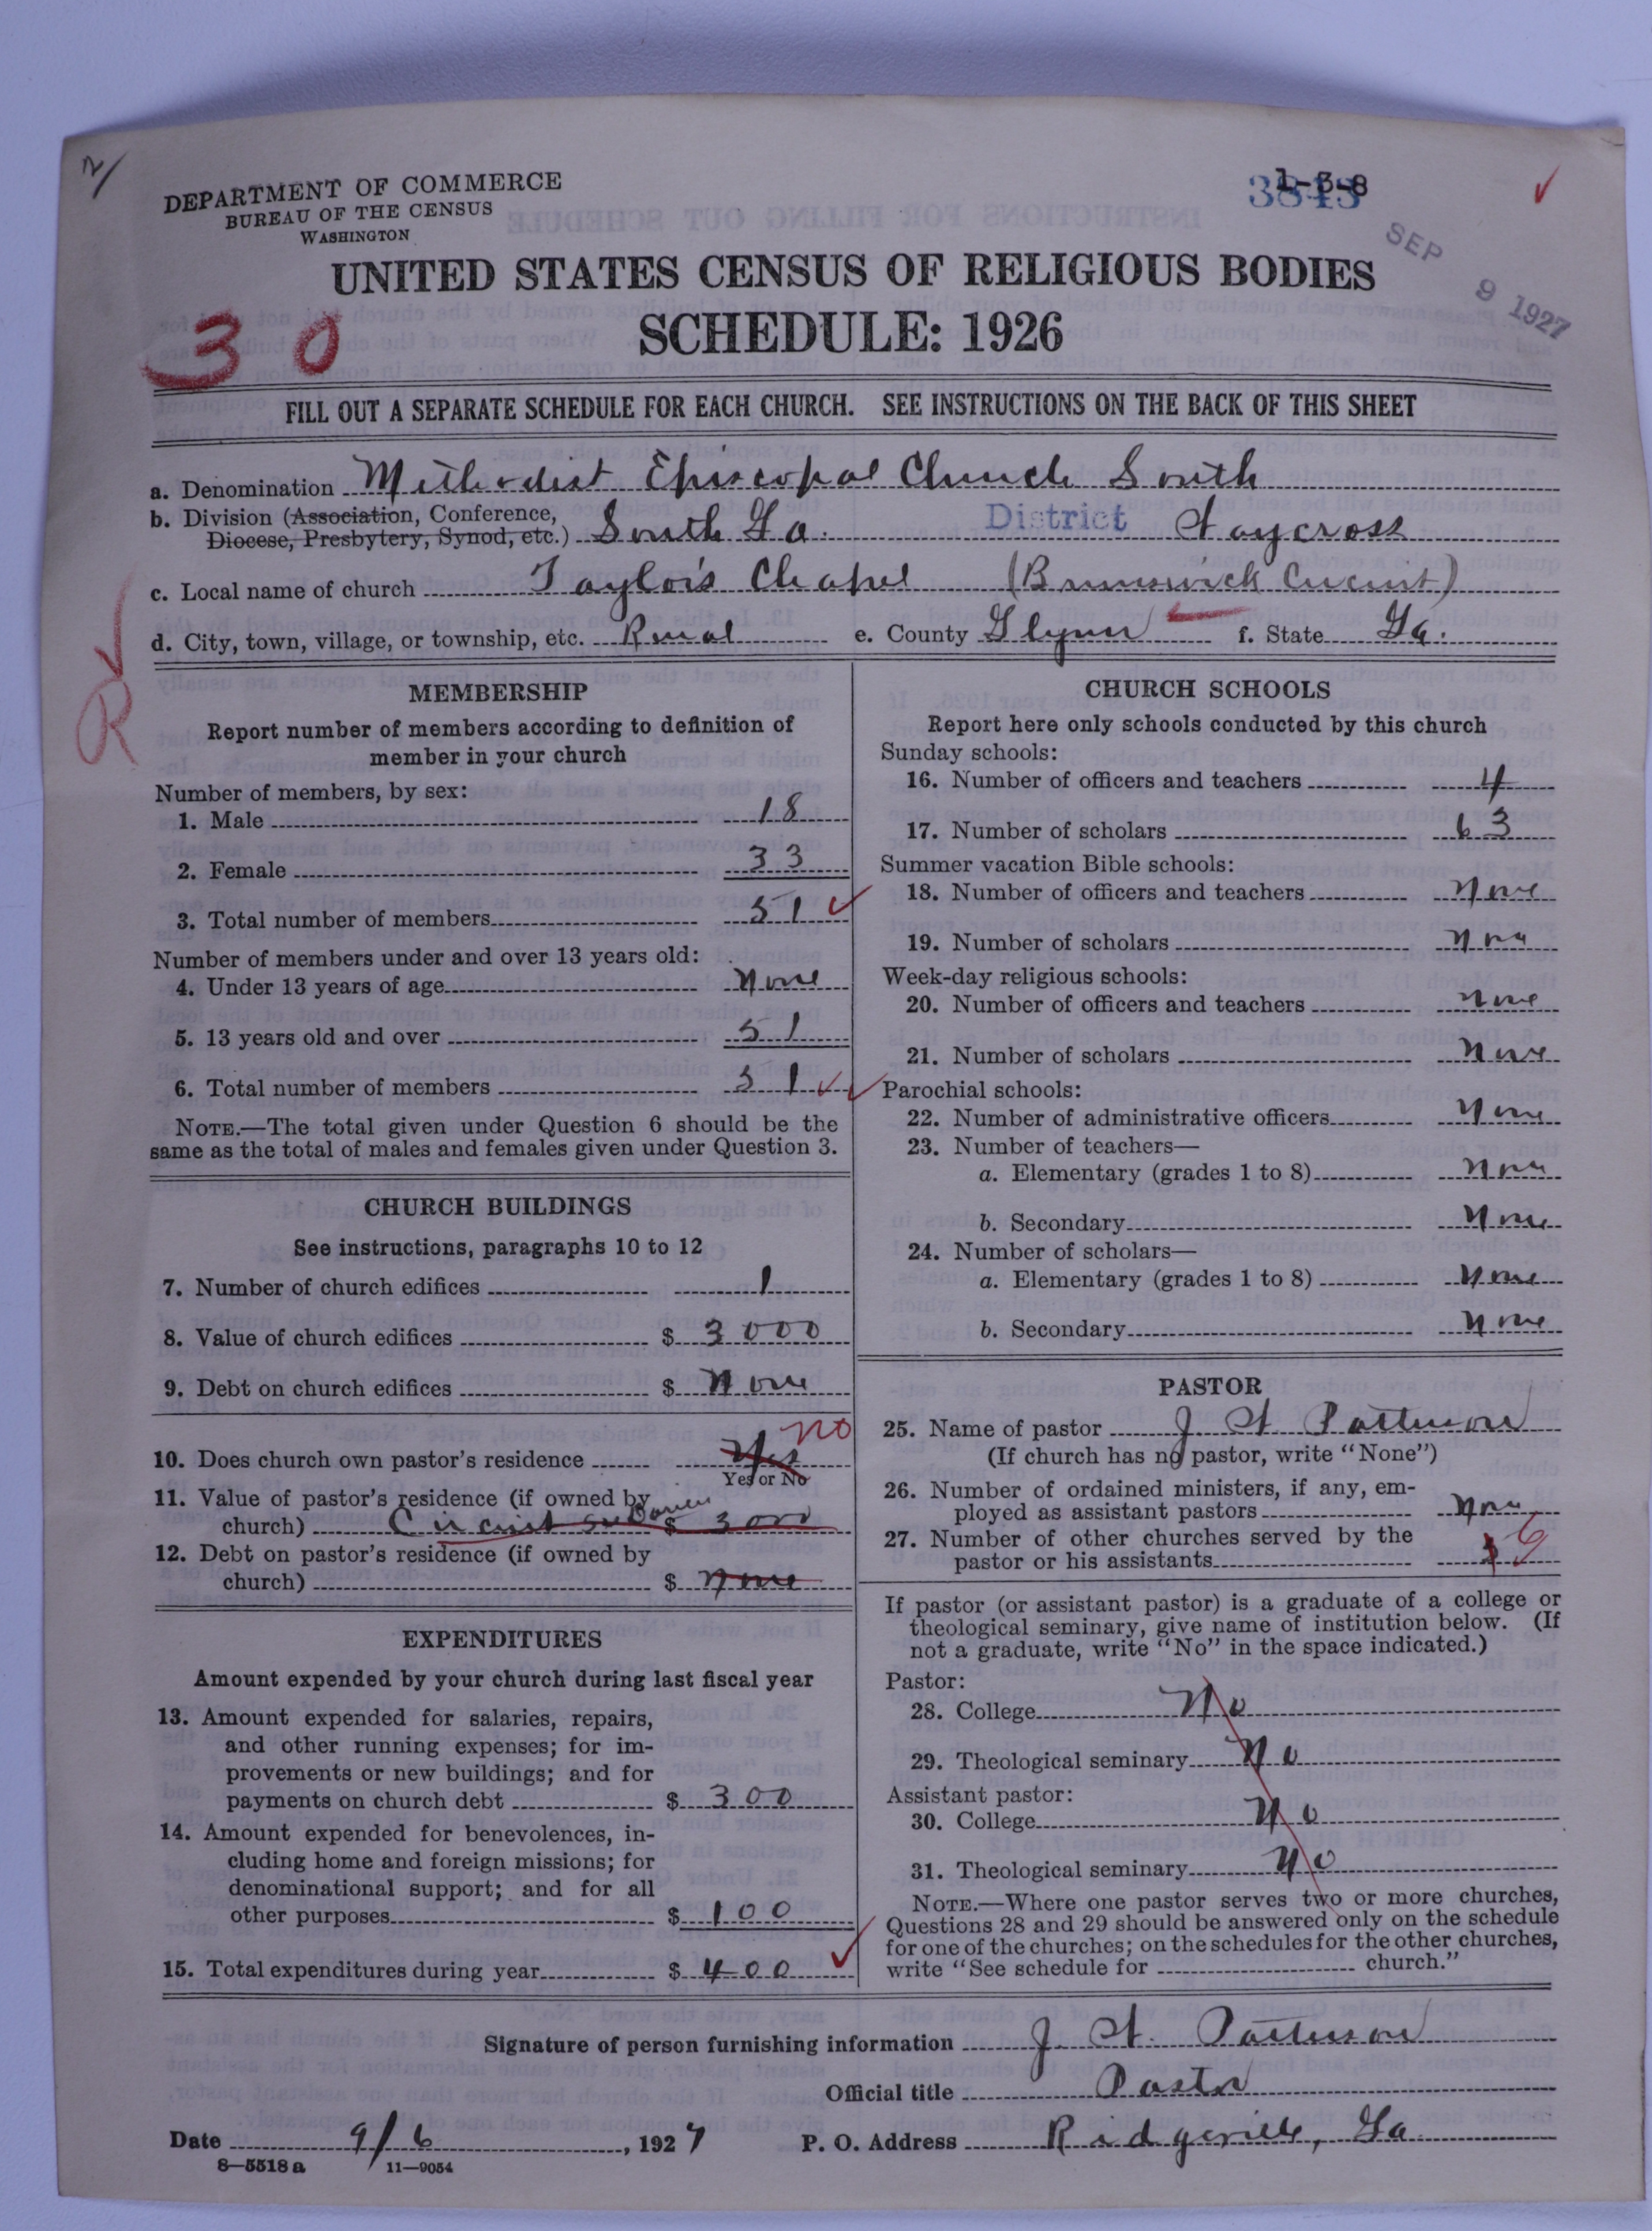 DEPARTMENT OF COMMERCE
BUREAU OF THE CENSUS
WASHINGTON
1-3-8
SEP 9 1927
UNITED STATES CENSUS OF RELIGIOUS BODIES
SCHEDULE: 1926
30
FILL OUT A SEPARATE SCHEDULE FOR EACH CHURCH. SEE INSTRUCTIONS ON THE BACK OF THIS SHEET
a. Denomination Methodist Episcopal Church South
b. Division (Association, Conference,
Diocese, Presbytery, Synod, etc.) South Ga. District Waycross
c. Local name of church Taylor's Chapel (Brunswick Circuit)
d. City, town, village, or township, etc. Rural e. County Glynn f. State Ga.
R
MEMBERSHIP
Report number of members according to definition of
member in your church
Number of members, by sex:
1. Male 18
2. Female 33
3. Total number of members 51
Number of members under and over 13 years old:
4. Under 13 years of age None
5. 13 years old and over 51
6. Total number of members 51
NOTE.—The total given under Question 6 should be the
same as the total of males and females given under Question 3.
CHURCH BUILDINGS
See instructions, paragraphs 10 to 12
7. Number of church edifices 1
8. Value of church edifices $ 3000
9. Debt on church edifices $ None
10. Does church own pastor's residence Yes no
Yes or No
11. Value of pastor's residence (if owned by
church) Circuit $ 3000
12. Debt on pastor's residence (if owned by
church) $ None
EXPENDITURES
Amount expended by your church during last fiscal year
13. Amount expended for salaries, repairs,
and other running expenses; for im-
provements or new buildings; and for
payments on church debt $ 300
14. Amount expended for benevolences, in-
cluding home and foreign missions; for
denominational support; and for all
other purposes $ 100
15. Total expenditures during year $ 400
CHURCH SCHOOLS
Report here only schools conducted by this church
Sunday schools:
16. Number of officers and teachers 4
17. Number of scholars 63
Summer vacation Bible schools:
18. Number of officers and teachers None
19. Number of scholars None
Week-day religious schools:
20. Number of officers and teachers None
21. Number of scholars None
Parochial schools:
22. Number of administrative officers None
23. Number of teachers—
a. Elementary (grades 1 to 8) None
b. Secondary None
24. Number of scholars—
a. Elementary (grades 1 to 8) None
b. Secondary None
PASTOR
25. Name of pastor J. H. Patterson
(If church has no pastor, write "None")
26. Number of ordained ministers, if any, em-
ployed as assistant pastors None
27. Number of other churches served by the
pastor or his assistants 6
If pastor (or assistant pastor) is a graduate of a college or
theological seminary, give name of institution below. (If
not a graduate, write "No" in the space indicated.)
Pastor:
28. College No
29. Theological seminary No
Assistant pastor:
30. College No
31. Theological seminary No
NOTE.—Where one pastor serves two or more churches,
Questions 28 and 29 should be answered only on the schedule
for one of the churches; on the schedules for the other churches,
write "See schedule for church."
Signature of person furnishing information J. H. Patterson
Official title Pastor
Date 9/6, 1927 P. O. Address Ridgeville, Ga.
8—5518 a 11—9054